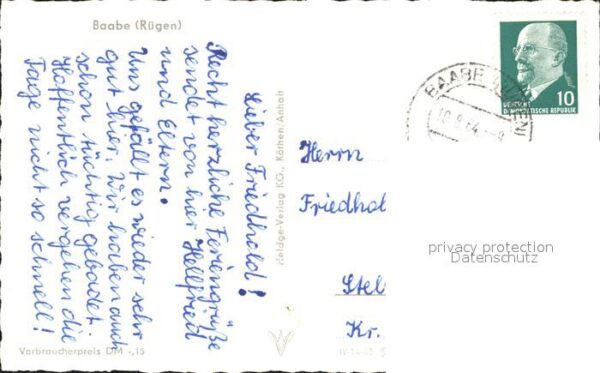 Baabe (Rügen)
Lieber Friedhold!
Recht herzliche Feriengrüße
sendet von hier Hellfried
und Eltern.
Uns gefällt es wieder sehr
gut hier. Wir haben auch
schon tüchtig gebadet.
Hoffentlich vergehen die
Tage nicht so schnell!
Verbraucherpreis DM -,15
Heldge-Verlag KG., Köthen/Anhalt
BAABE
10.8.64
DEUTSCHE
DEMOKRATISCHE REPUBLIK
10
Herrn
Friedhol
Stel
Kr.
privacy protection
Datenschutz